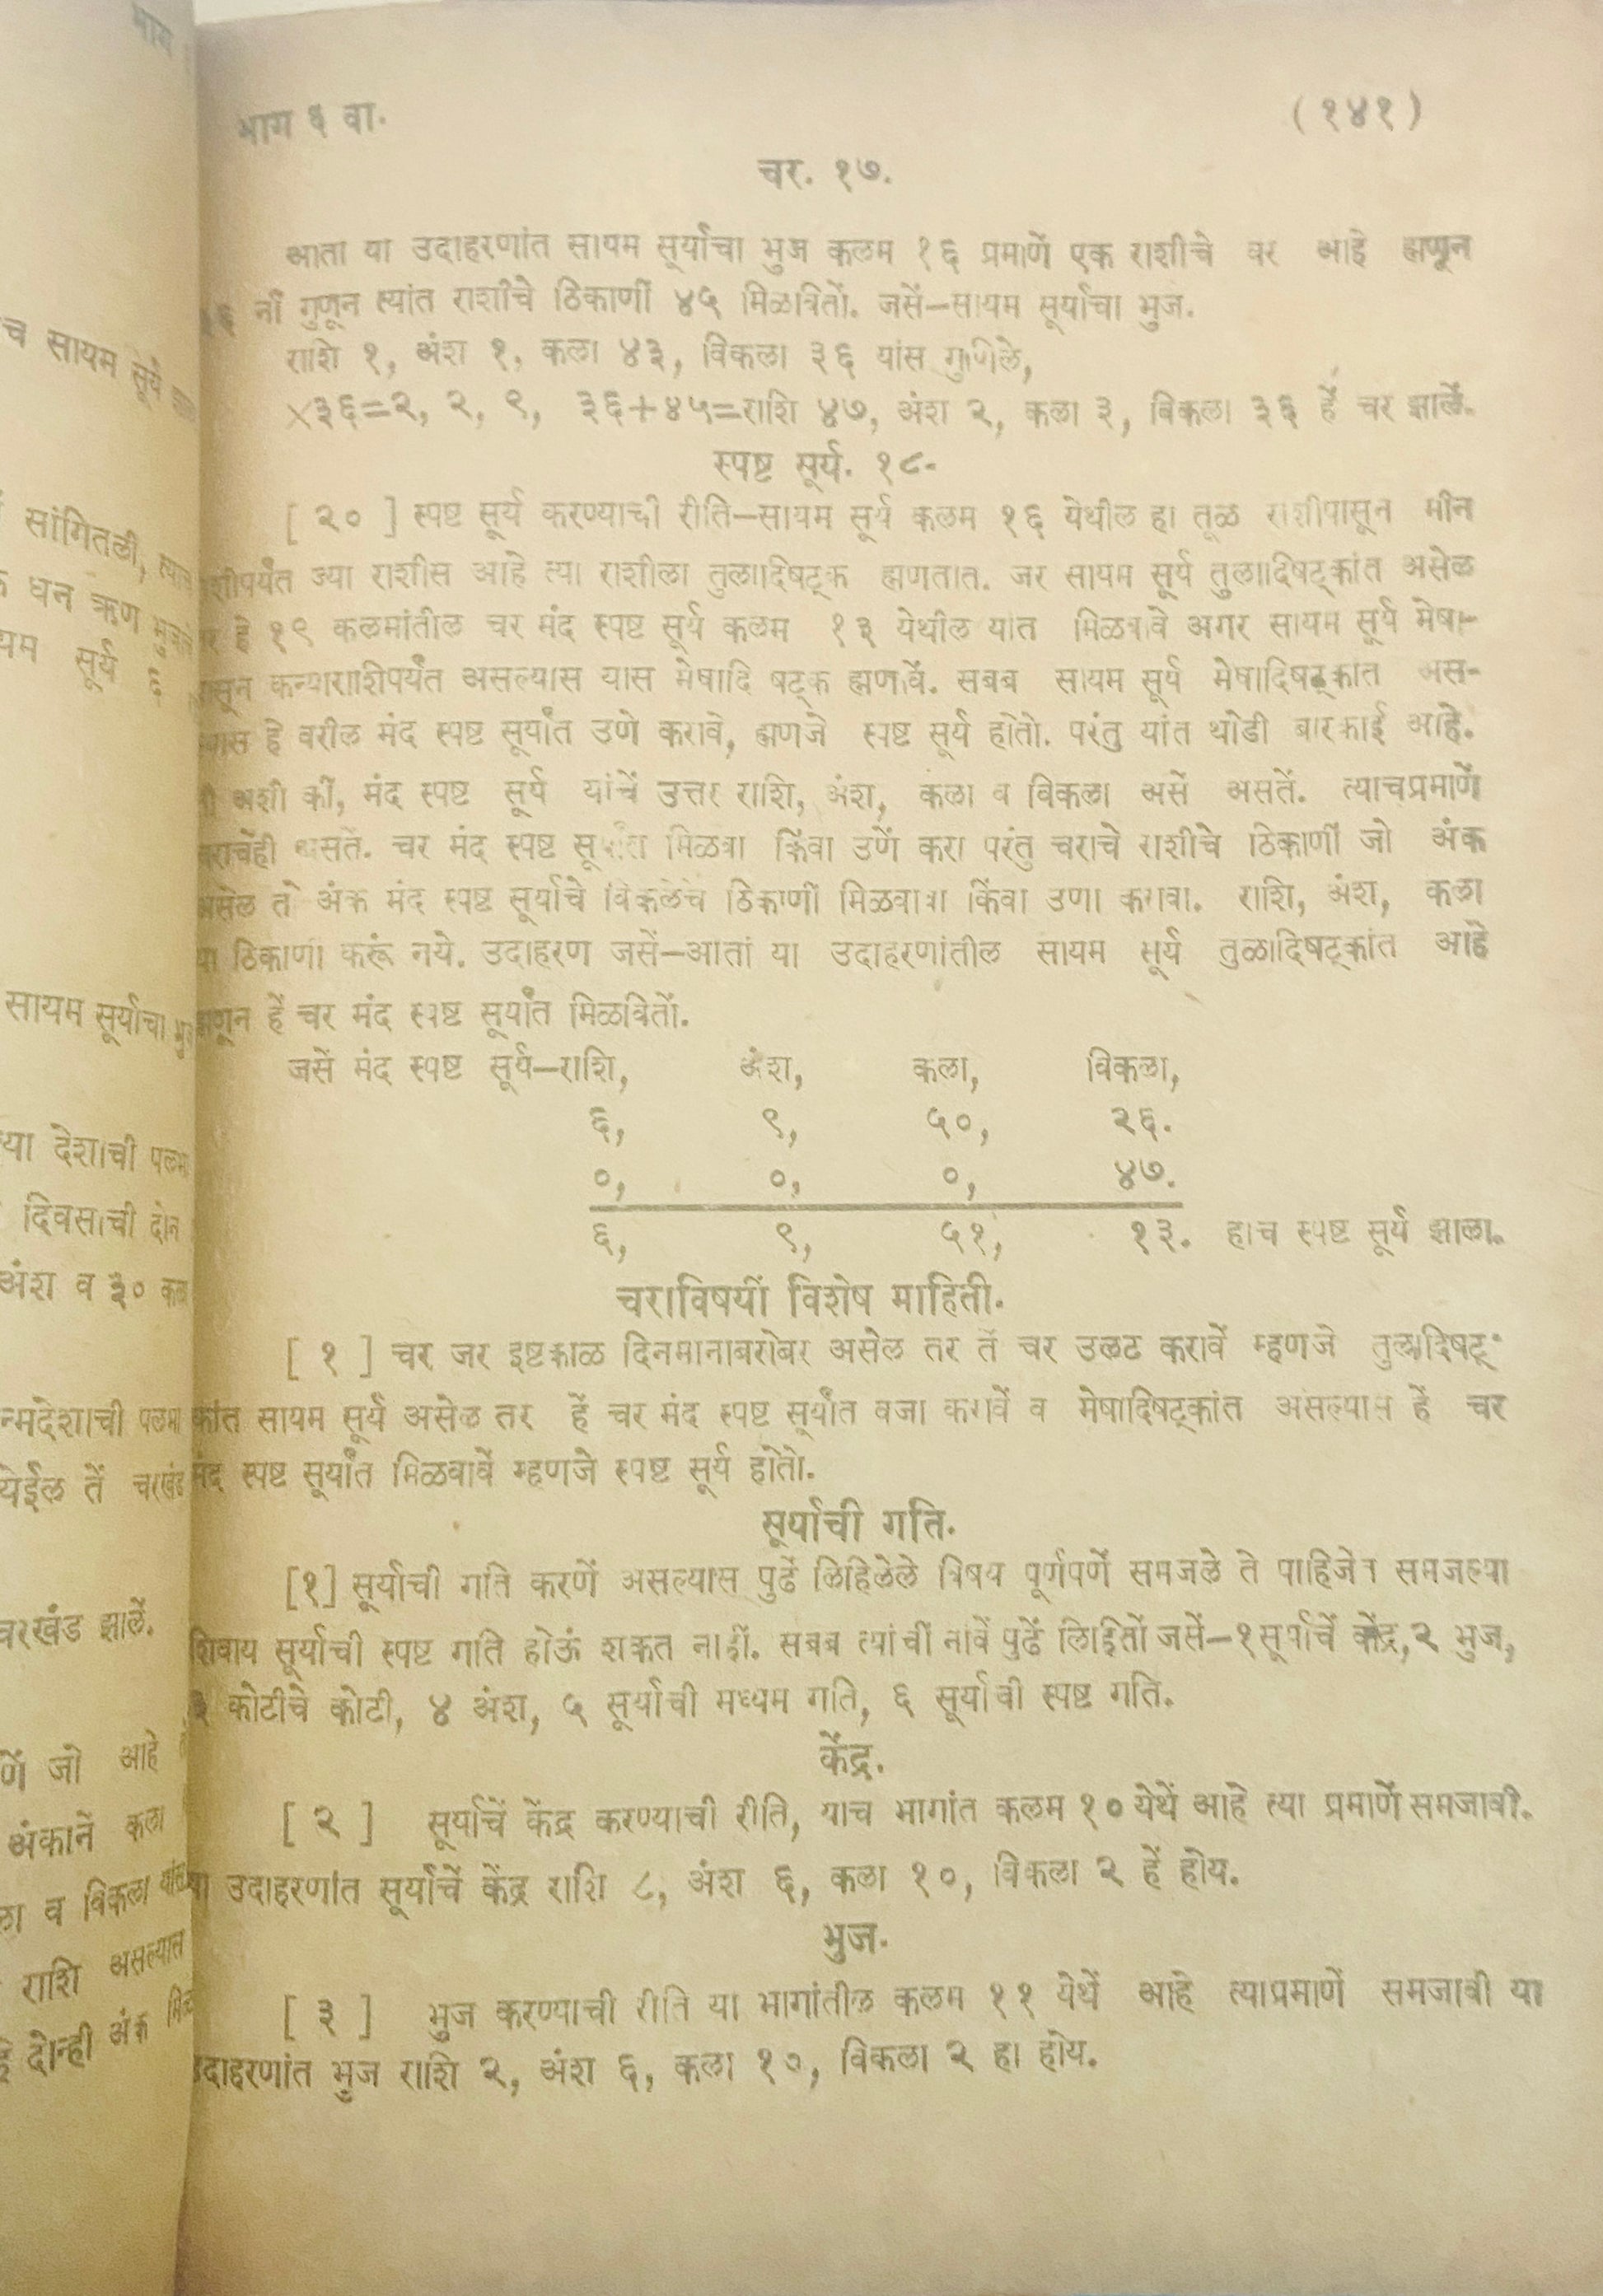 भाग ६ वा.
(१४१)
चर. १७.
आता या उदाहरणांत सायम सूर्याचा भुज कलम १६ प्रमाणें एक राशीचे वर आहे ह्मणून
३६ नीं गुणून त्यांत राशीचे ठिकाणीं ४५ मिळवितों. जसें—सायम सूर्याचा भुज.
राशि १, अंश १, कला ४३, विकला ३६ यांस गुणिले,
×३६=२, २, ९, ३६+४५=राशि ४७, अंश २, कला ३, विकला ३६ हें चर झालें.
स्पष्ट सूर्य. १८.
[ २० ] स्पष्ट सूर्य करण्याची रीति—सायम सूर्य कलम १६ येथील हा तूळ राशीपासून मीन
राशीपर्यंत ज्या राशीस आहे त्या राशीला तुलादिषट्क ह्मणतात. जर सायम सूर्य तुलादिषट्कांत असेल
तर हे १९ कलमांतील चर मंद स्पष्ट सूर्य कलम १३ येथील यांत मिळवावे अगर सायम सूर्य मेषा-
पासून कन्याराशिपर्यंत असल्यास यास मेषादि षट्क ह्मणावें. सबब सायम सूर्य मेषादिषट्कांत अस-
ल्यास हे वरील मंद स्पष्ट सूर्यांत उणे करावे, ह्मणजे स्पष्ट सूर्य होतो. परंतु यांत थोडी बारकाई आहे.
ती अशी कीं, मंद स्पष्ट सूर्य यांचें उत्तर राशि, अंश, कला व विकला असें असतें. त्याचप्रमाणें
चराचेंही असतें. चर मंद स्पष्ट सूर्यांत मिळवा किंवा उणें करा परंतु चराचे राशीचे ठिकाणीं जो अंक
असेल तो अंक मंद स्पष्ट सूर्याचे विकलेचे ठिकाणीं मिळवावा किंवा उणा करावा. राशि, अंश, कला
या ठिकाणीं करूं नये. उदाहरण जसें—आतां या उदाहरणांतील सायम सूर्य तुळादिषट्कांत आहे
ह्मणून हें चर मंद स्पष्ट सूर्यांत मिळवितों.
जसें मंद स्पष्ट सूर्य—राशि, अंश, कला, विकला,
६, ९, ५०, २६.
०, ०, ०, ४७.
६, ९, ५१, १३. हाच स्पष्ट सूर्य झाला.
चराविषयीं विशेष माहिती.
[ १ ] चर जर इष्टकाळ दिनमानाबरोबर असेल तर तें चर उलट करावें म्हणजे तुलादिषट्-
कांत सायम सूर्य असेल तर हें चर मंद स्पष्ट सूर्यांत वजा करावें व मेषादिषट्कांत असल्यास हें चर
मंद स्पष्ट सूर्यांत मिळवावें म्हणजे स्पष्ट सूर्य होतो.
सूर्याची गति.
[१] सूर्याची गति करणें असल्यास पुढें लिहिलेले विषय पूर्णपणें समजले ते पाहिजेत समजल्या
शिवाय सूर्याची स्पष्ट गति होऊं शकत नाहीं. सबब त्यांचीं नावें पुढें लिहितों जसें—१ सूर्याचें केंद्र, २ भुज,
३ कोटीचे कोटी, ४ अंश, ५ सूर्याची मध्यम गति, ६ सूर्याची स्पष्ट गति.
केंद्र.
[ २ ] सूर्याचें केंद्र करण्याची रीति, याच भागांत कलम १० येथें आहे त्या प्रमाणें समजावी.
या उदाहरणांत सूर्याचें केंद्र राशि ८, अंश ६, कला १०, विकला २ हें होय.
भुज.
[ ३ ] भुज करण्याची रीति या भागांतील कलम ११ येथें आहे त्याप्रमाणें समजावी या
उदाहरणांत भुज राशि २, अंश ६, कला १०, विकला २ हा होय.